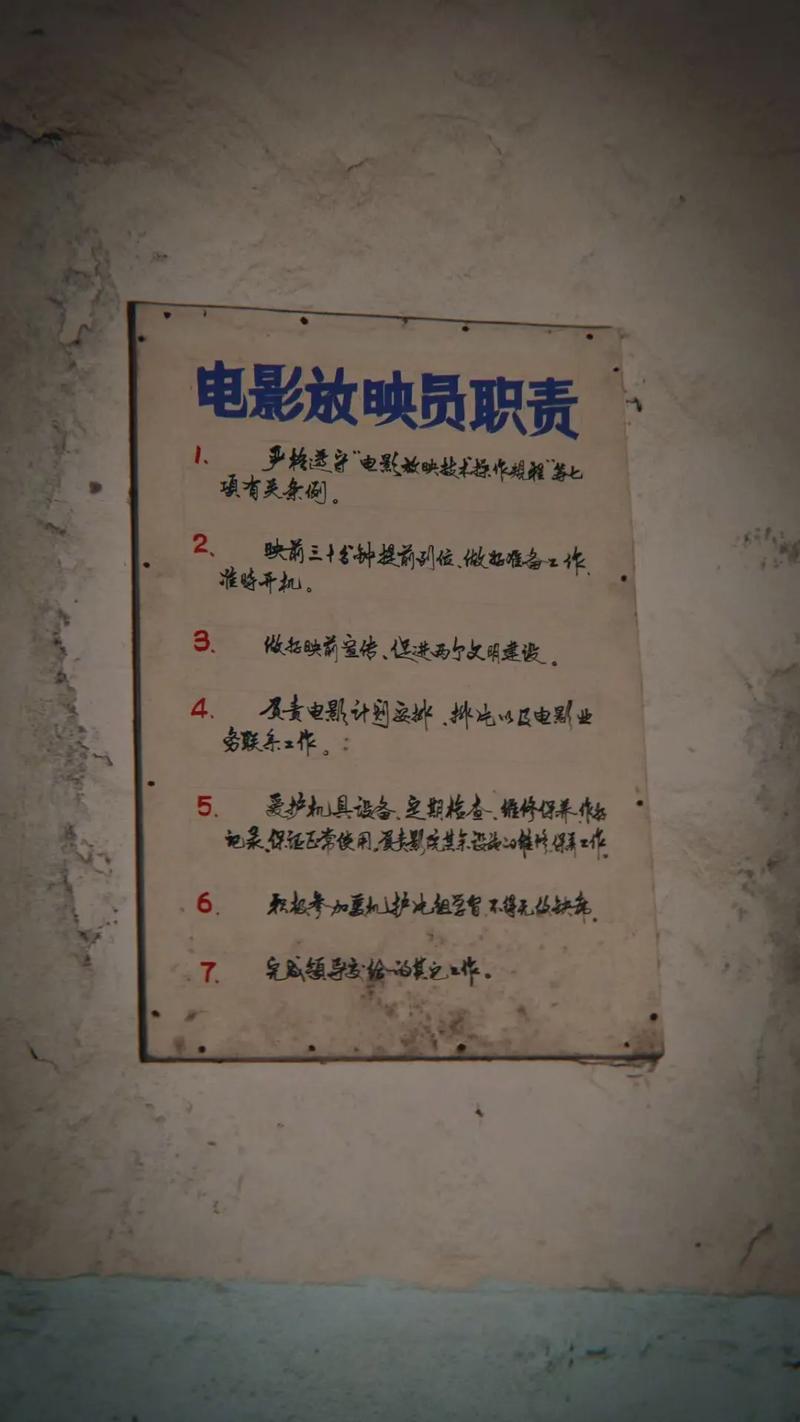 电影放映员职责
1. 严格遵守“电影放映技术操作规程”等七
项有关条例。
2、 映前三十分钟提前到位、做好准备工作，
准时开机。
3. 做好映前宣传、促进两个文明建设。
4. 负责电影计划安排、排片以及电影业
务联系工作。
5. 爱护机具设备、定期检查、维修保养、作好
记录、保证正常使用，负责影院其余设备的维修保养工作。
6. 积极参加 机护片组学习，不得无故缺席。
7. 完成领导交给的其它工作。